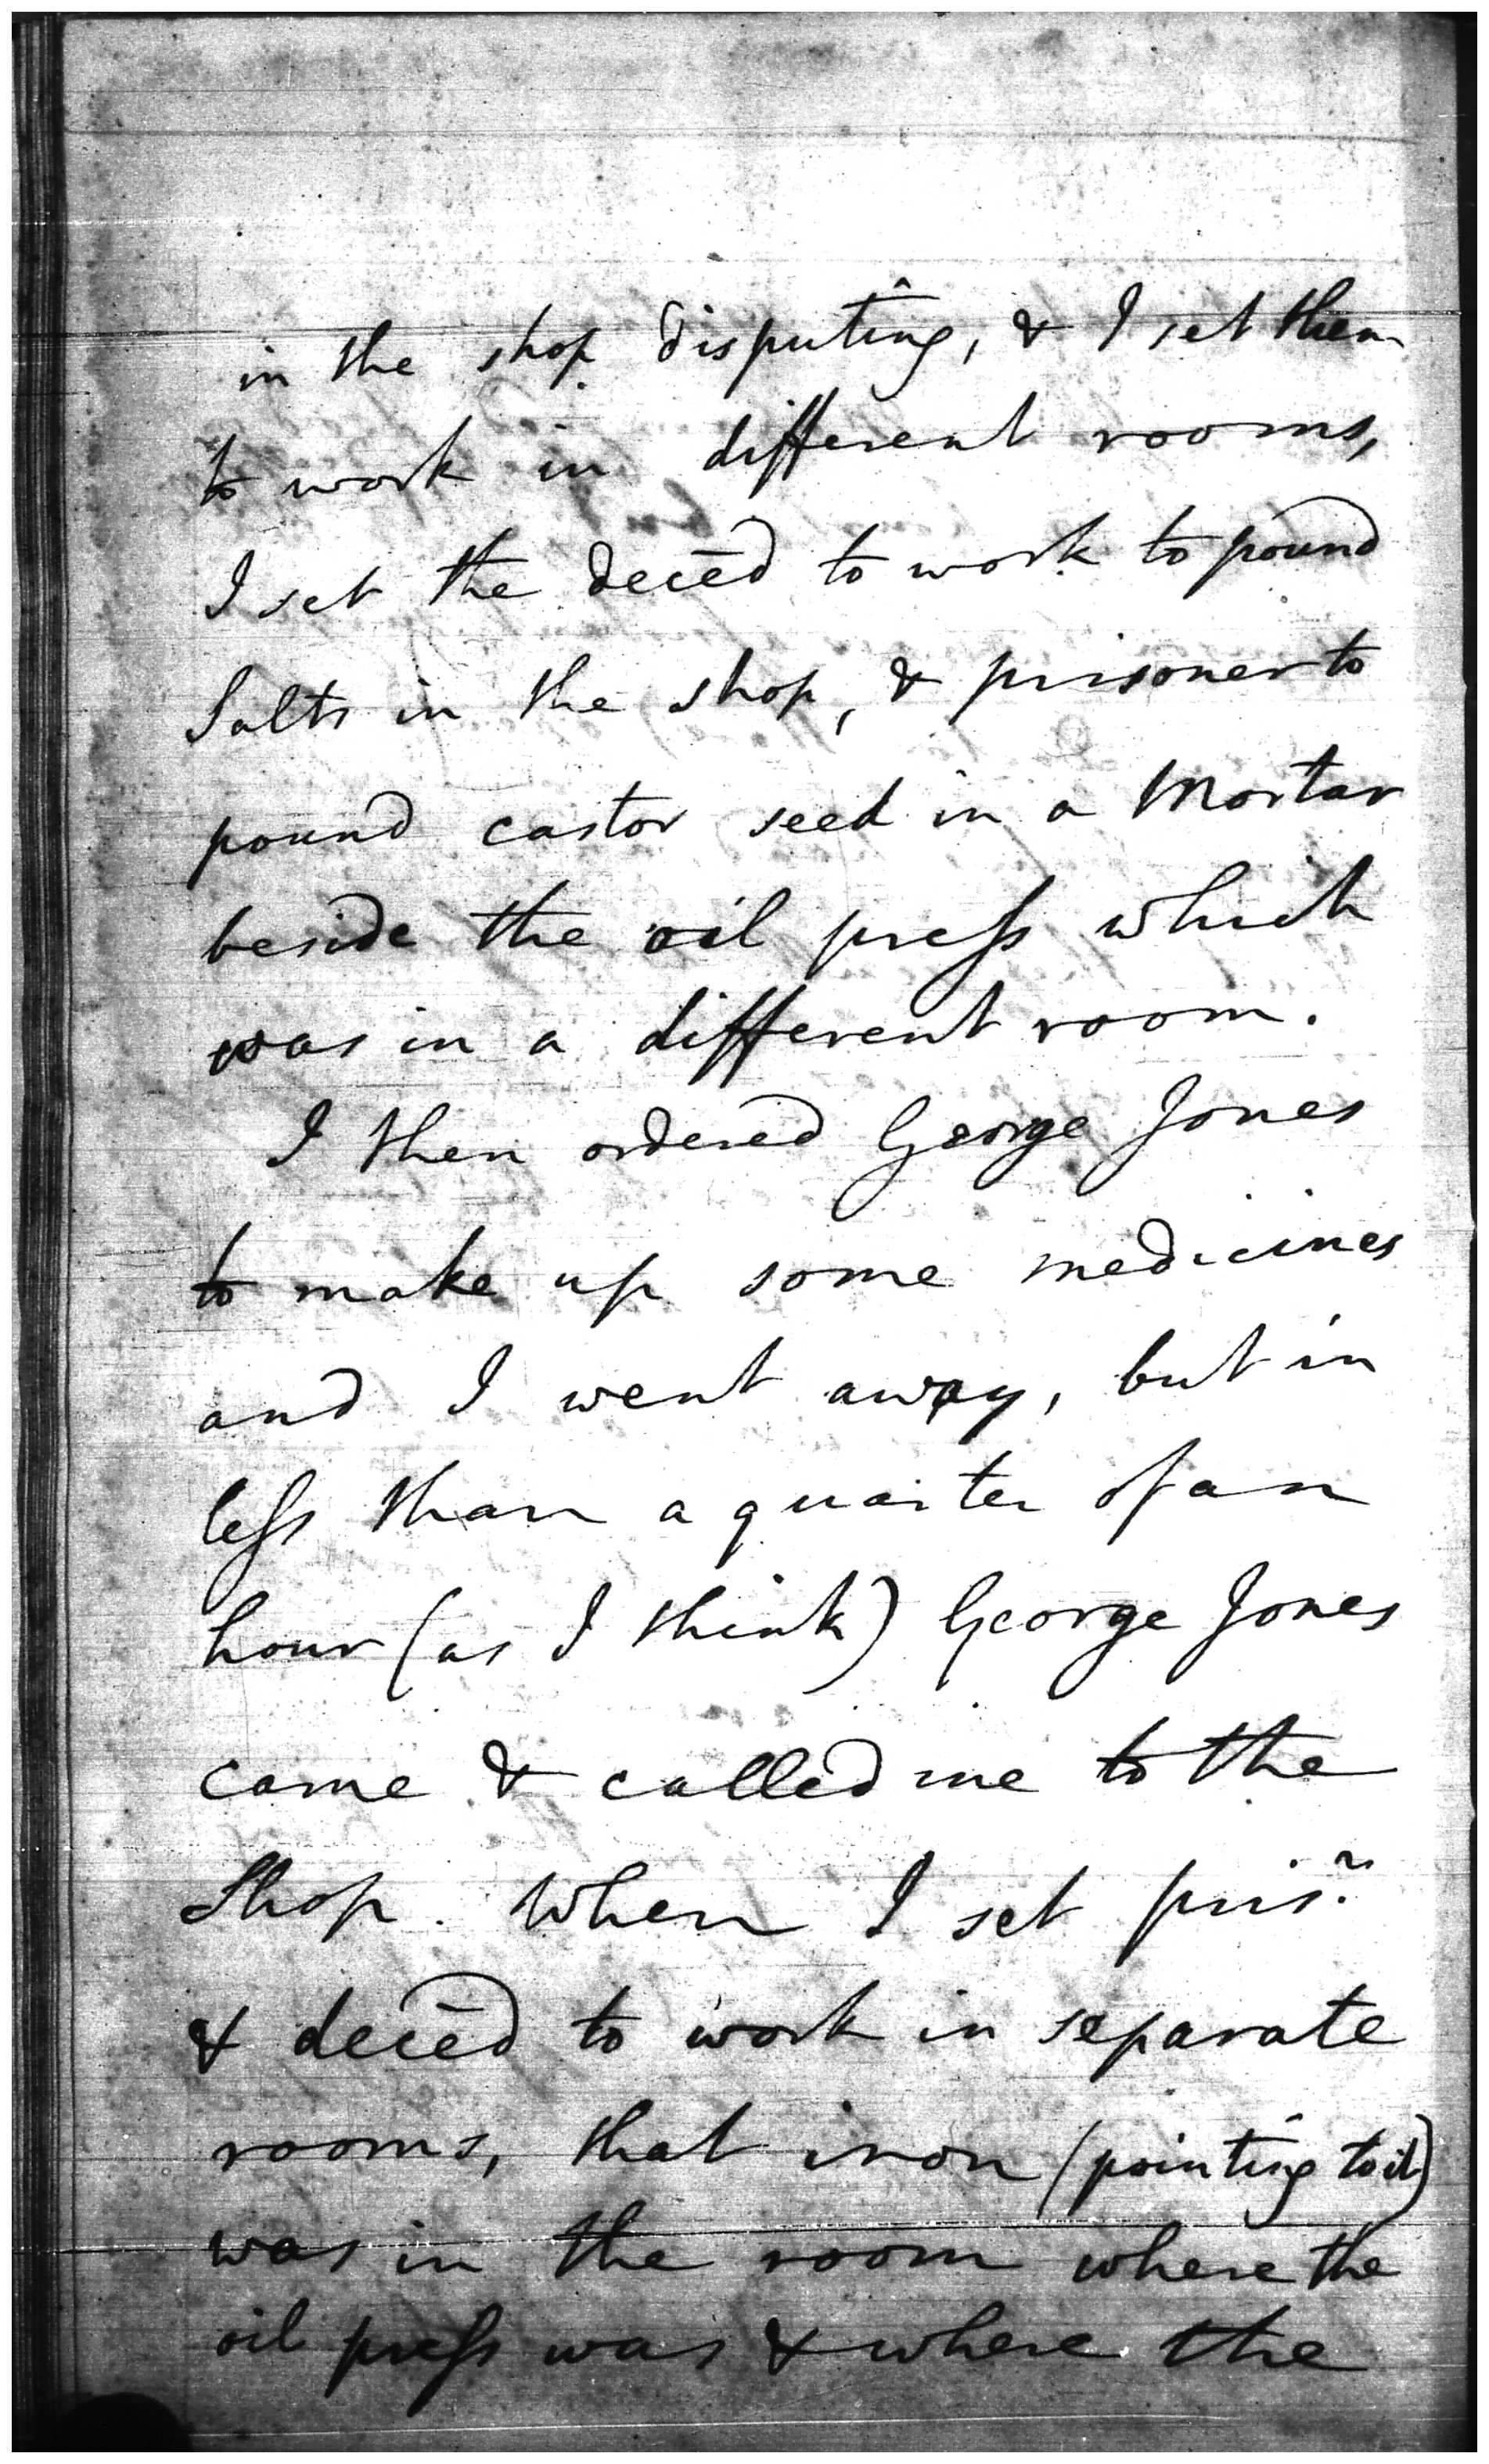 in the shop disputing, & I set them
to work in different rooms,
I set the decēd to work to pound
Salts in the shop, & prisoner to
pound castor seed in a Mortar
beside the oil press which
was in a different room.
I then ordered George Jones
to make up some medicines
and I went away, but in
less than a quarter of an
hour (as I think) George Jones
came & called me to the
Shop. When I set prisr.
& decēd to work in separate
rooms, that iron (pointing to it)
was in the room where the
oil press was & where the